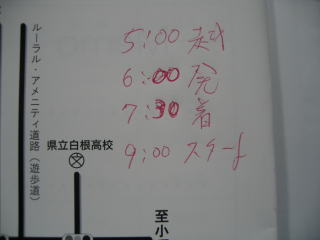 5:00 起
6:00 発
7:30 着
9:00 スタート
ルーラル・アメニティ道路（遊歩道）
県立白根高校
至小